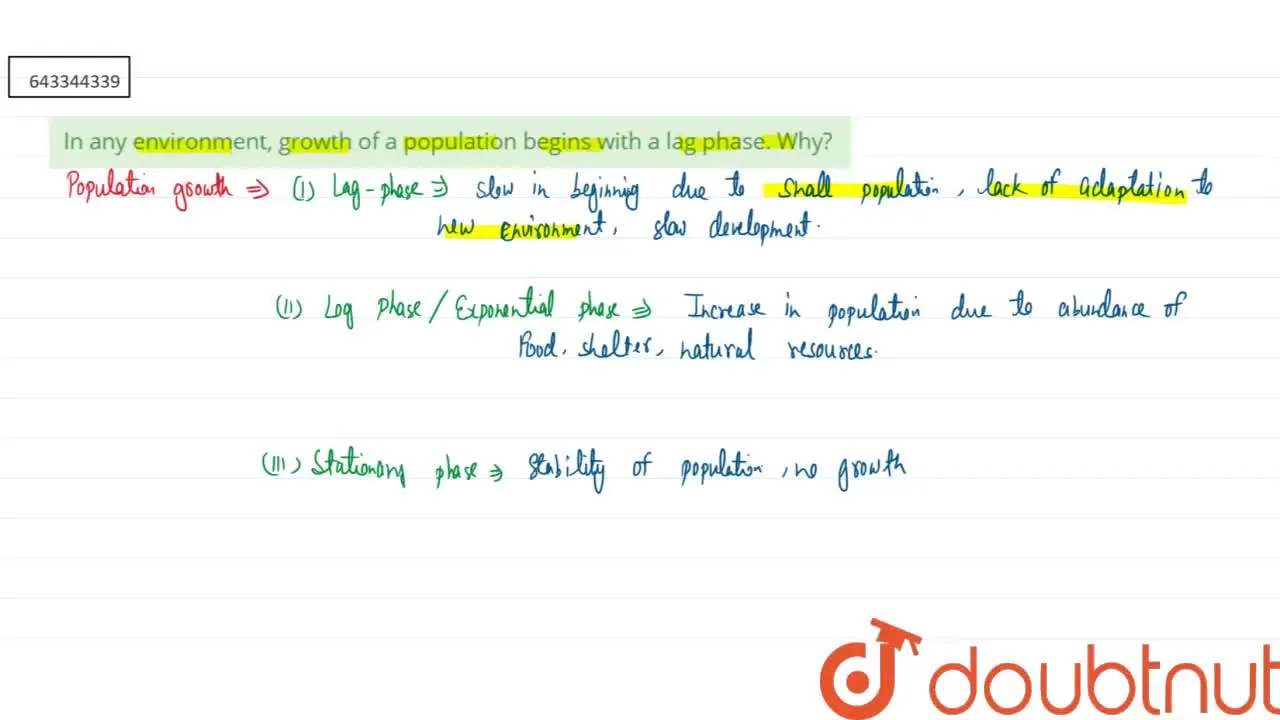 643344339
In any environment, growth of a population begins with a lag phase. Why?
Population growth ⇒ (I) Lag-phase ⇒ slow in beginning due to small population, lack of adaptation to
new environment, slow development.
(II) Log phase / Exponential phase ⇒ Increase in population due to abundance of
food, shelter, natural resources.
(III) Stationary phase ⇒ Stability of population, no growth
doubtnut